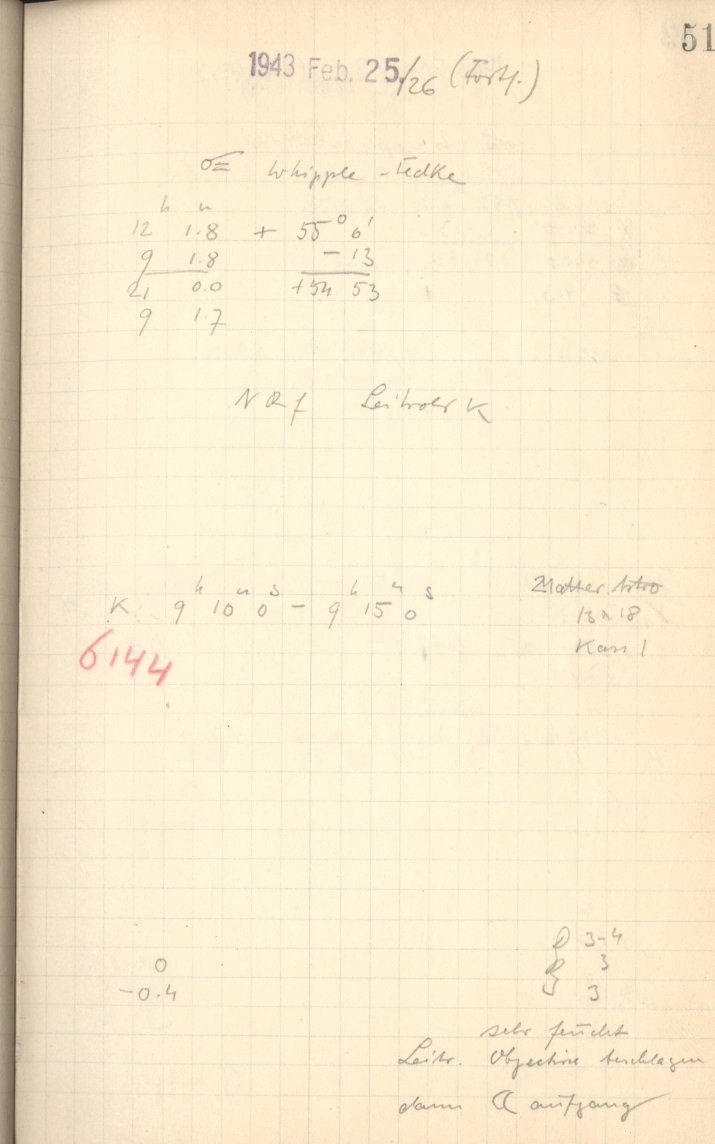 51
1943 Feb. 25./26 (Forts.)
Whipple - Fedke
h m
12 1.8 + 55° 6'
9 1.8 - 13
21 0.0 +54 53
9 1.7
Leitrohr K
K 9 h 10 m 0 s - 9 h 15 m 0 s
13 x 18
Kass 1
6144
3-4
0 3
-0.4 3
sehr feucht
Leitr. Objective beschlagen
dann ☾ aufgang